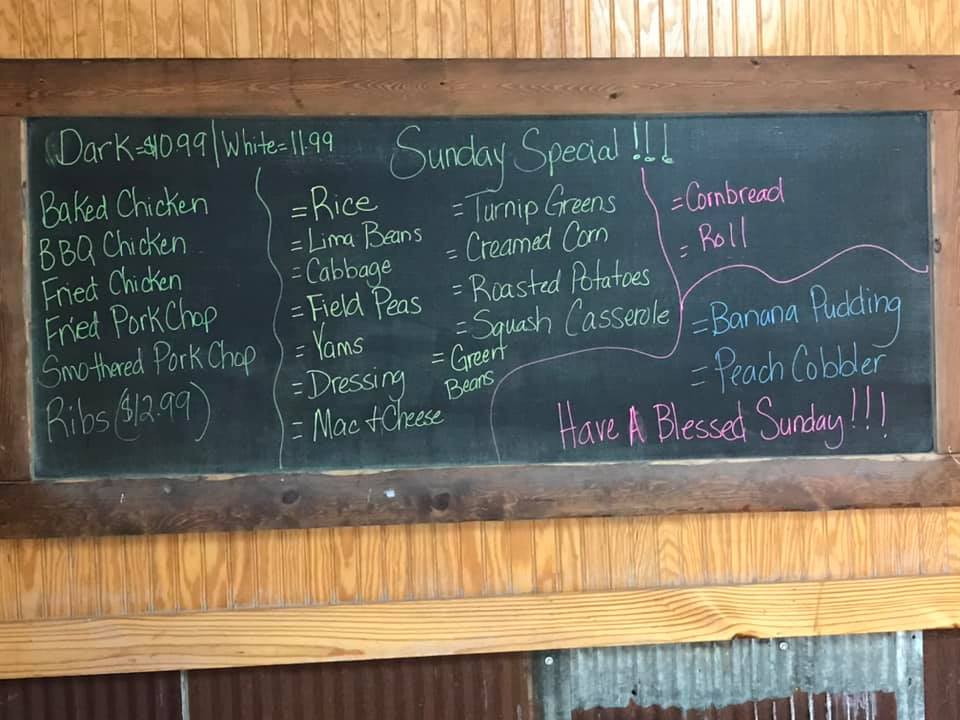 Dark=$10.99 | White=11.99
Sunday Special !!!
Baked Chicken
BBQ Chicken
Fried Chicken
Fried Pork Chop
Smothered Pork Chop
Ribs ($12.99)
=Rice
=Lima Beans
=Cabbage
=Field Peas
=Yams
=Dressing
=Mac + Cheese
=Turnip Greens
=Creamed Corn
=Roasted Potatoes
=Squash Casserole
=Green
Beans
=Cornbread
=Roll
=Banana Pudding
=Peach Cobbler
Have A Blessed Sunday!!!